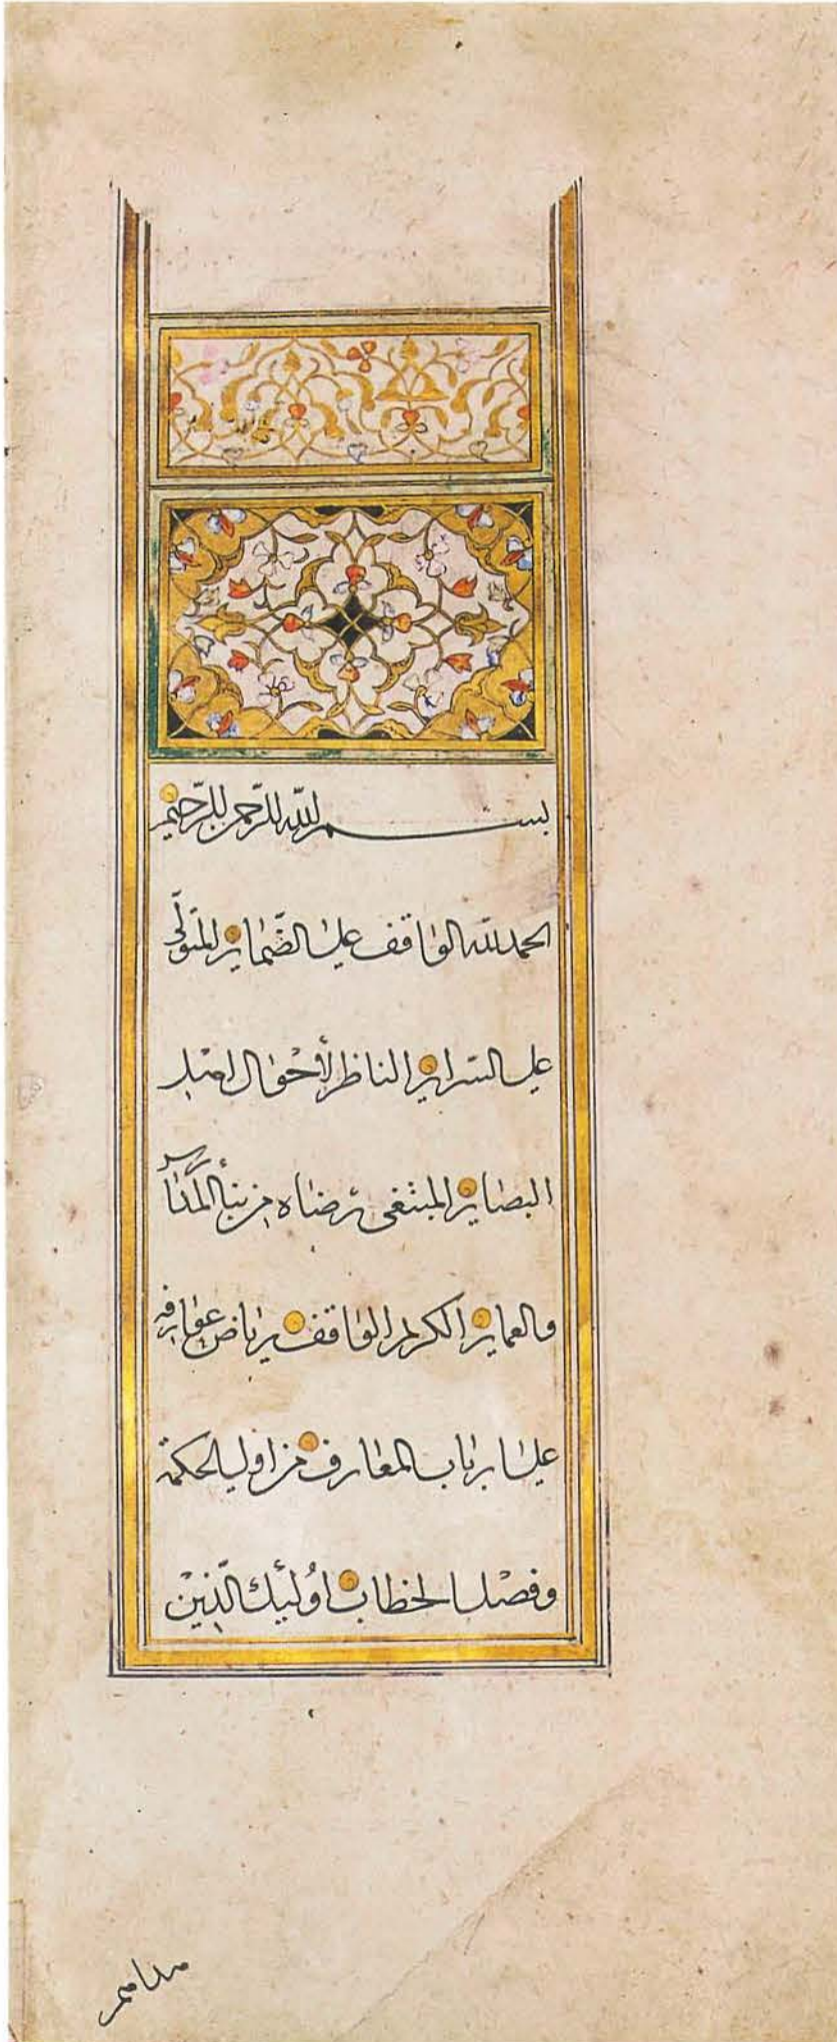 بسم الله الرحمن الرحيم
الحمد لله الواقف على الضماير المتولي
على السراير الناظر لأحوال اهل
البصاير المبتغى رضاه من بناء المدارس
والعماير الكريم الواقف رياض عوارفه
على ارباب المعارف من اولي الحكمة
وفصل الخطاب اولئك الذين